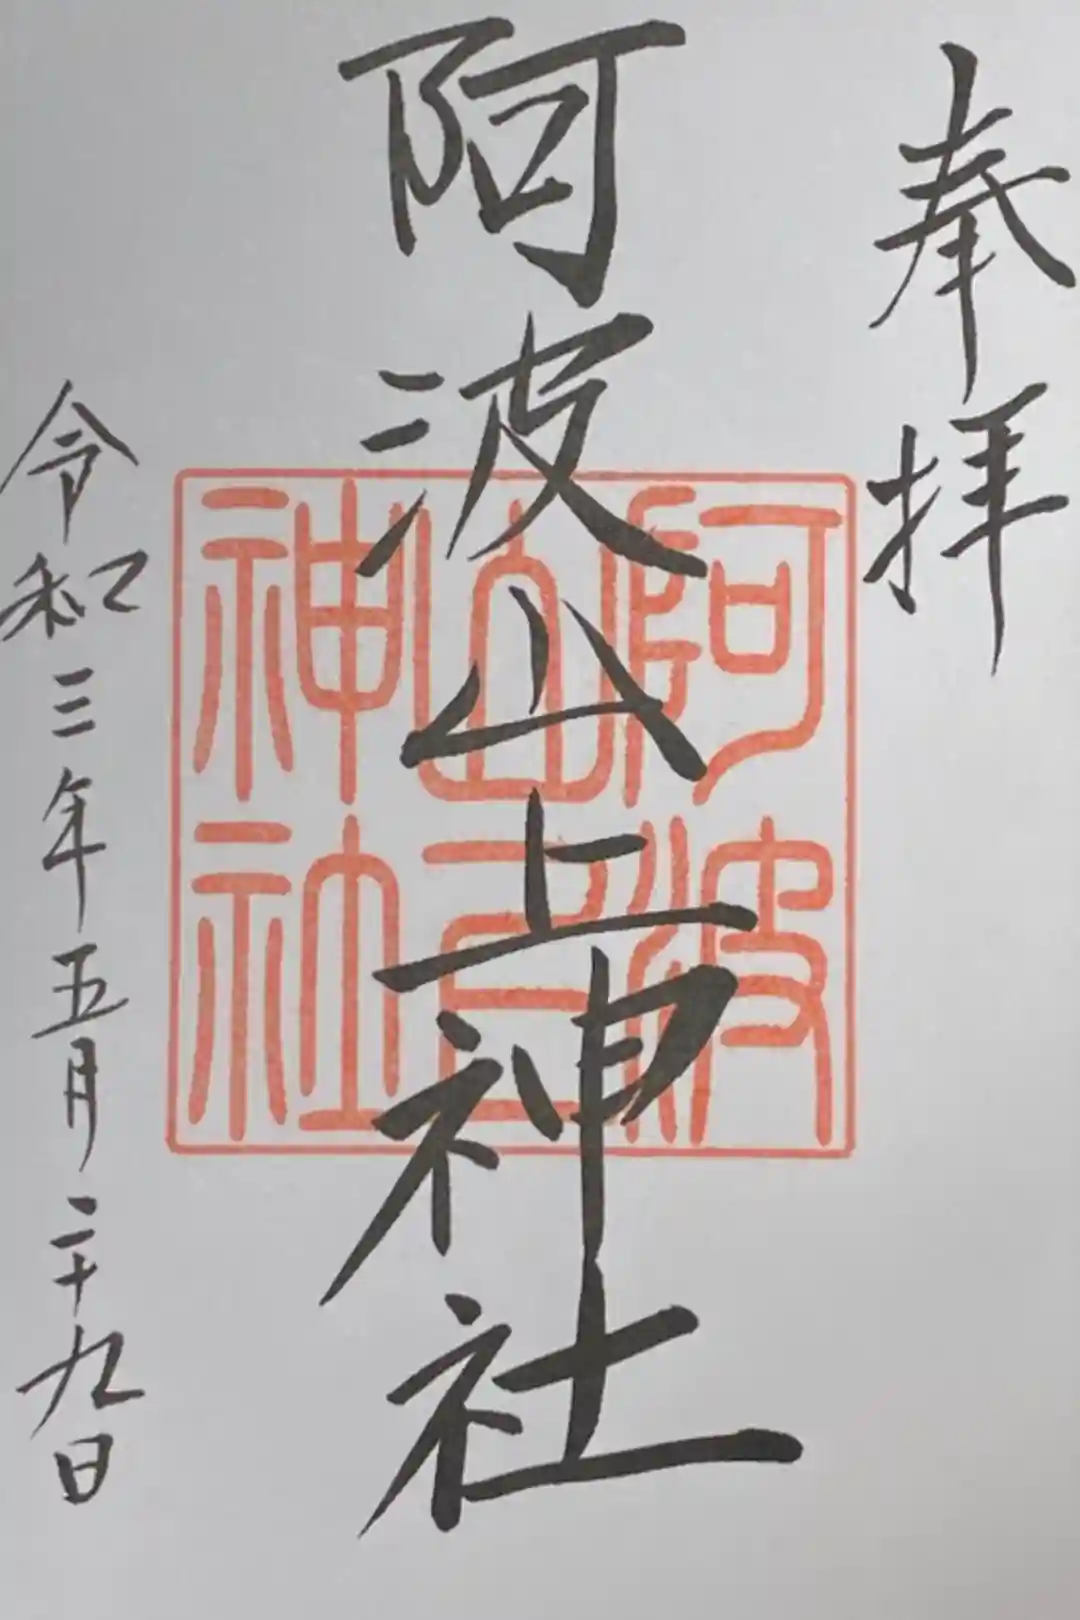 奉拝
阿波山上神社
阿波
山上
神社
令和三年五月二十九日